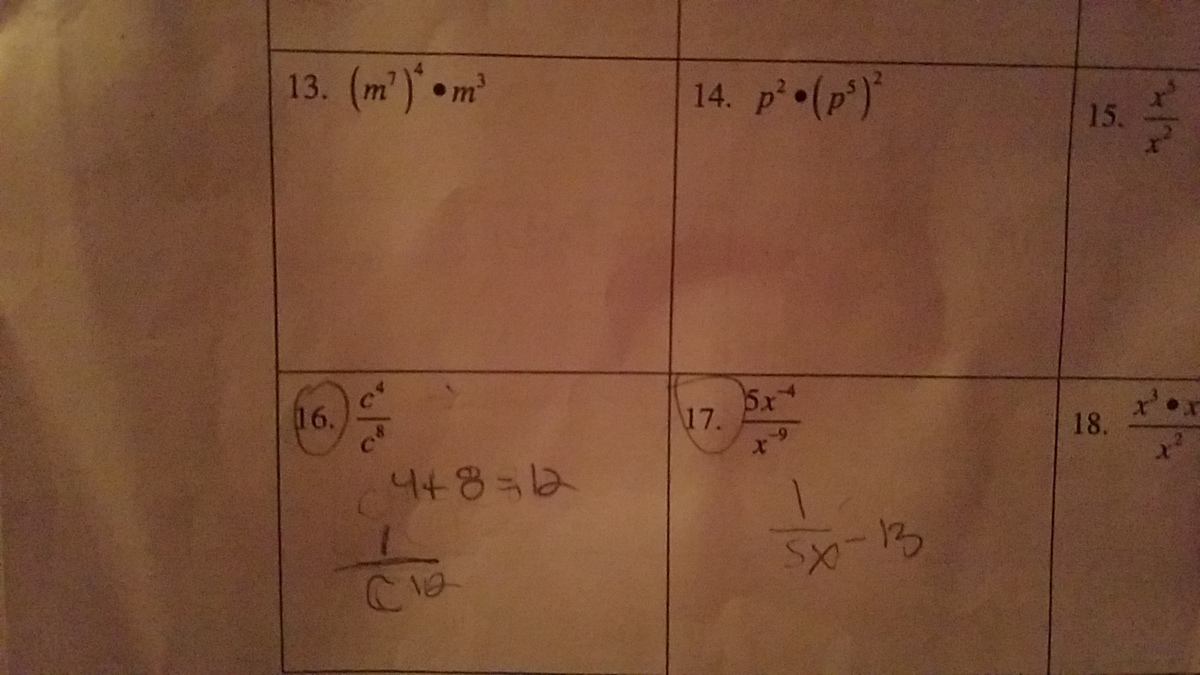 13. (m⁷)⁴ • m³
14. p² • (p⁵)²
15. x⁵/x²
16. c⁴/c⁸
4 + 8 = 12
1/C 12
17. 5x⁻⁴/x⁻⁹
1/5x - 13
18. x³ • x/x²